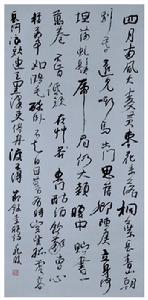 四月南風大麥黃棗花未落桐葉長青山朝
別暮還見嘶馬出門思舊鄉陳侯立身何
坦蕩虬鬚虎眉仍大顙腹中貯書一
萬卷不肯低頭在草莽東門酤酒飲我曹心
輕萬事如鴻毛醉臥不知白日暮有時空望孤雲高
長河浪頭連天黑津吏停舟渡不得 節錄李頎詩